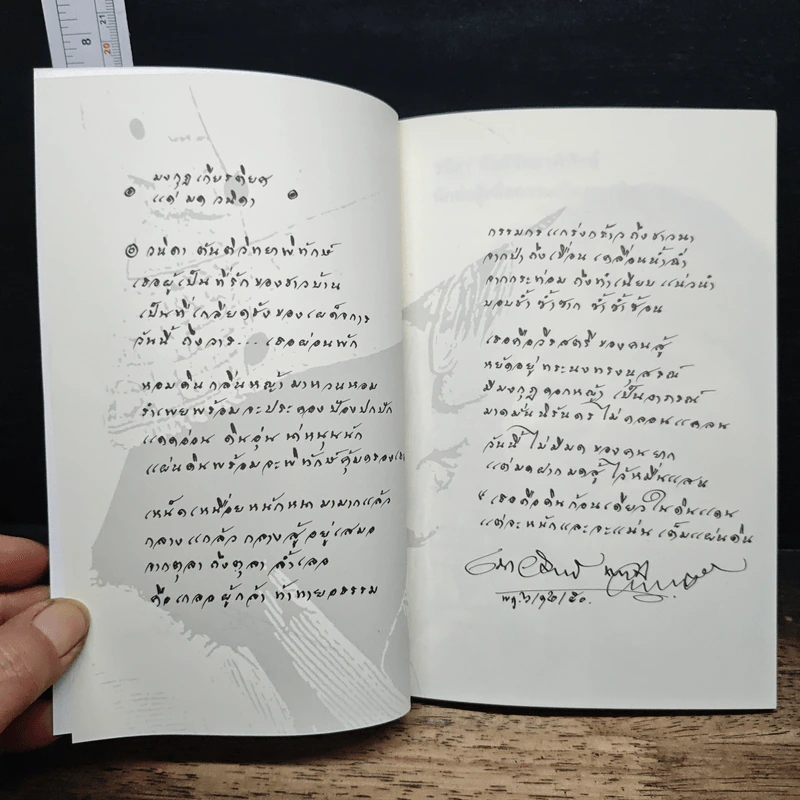 8
21
20
มงกุฎเกียรติยศ
แด่ มด วนิดา
วนิดา ตันติวิทยาพิทักษ์
เธอผู้เป็นที่รักของชาวบ้าน
เป็นที่เกลียดชังของเผด็จการ
วันนี้ ถึงวาร... เธอผ่อนพัก
หอมดิน กลิ่นหญ้า มาหวนหอม
รำเพยพร้อม จะประคอง ป้องปกปัก
แดดอ่อน ดินอุ่น หนุนนัก
แผ่นดินพร้อมจะพิทักษ์คุ้มครองเธอ
เหน็ดเหนื่อยหนักหนา มามากแล้ว
กลางแกล้ว กลางสู้ อยู่เสมอ
จากตุลา ถึงตุลา ล้ำเลอ
คือเกลอ ผู้กล้า ท้าทายอธรรม
กรรมกรแกร่งกร้าว ถึงชาวนา
จากป่า ถึงเขื่อน เคลื่อนน้ำฉ่ำ
จากกระท่อม ถึงทำเนียบ แน่วนำ
บอบช้ำ ซ้ำซาก ซ้ำซ้ำซ้อน
เธอคือวีรสตรี ของคนสู้
หยัดอยู่ ทระนง ทรงนุสรณ์
มีมงกุฎดอกหญ้า เป็นอาภรณ์
มาดมั่นนิรันดร ไม่คลอนแคลน
วันนี้ ไม่มีมด ของคนยาก
แต่มดฝากมดสู้ ไว้หมื่นแสน
"เธอคือดินก้อนเดียวในดินแดน
แต่จะหนักและจะแน่น เต็มแผ่นดิน
พฤ.๖/๑๒/๕๐.